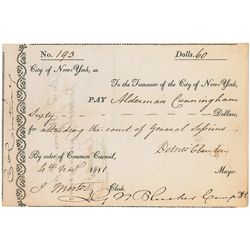 No. 193 Dolls. 60
City of New-York, ss.
To the Treasurer of the City of New-York,
PAY Alderman Cunningham
Sixty Dollars,
for attending the court of General Sessions.
By order of Common Council, DeWitt Clinton
4th Novr. 1811 Mayor
J Morton Clerk.
G N Bleecker Compt